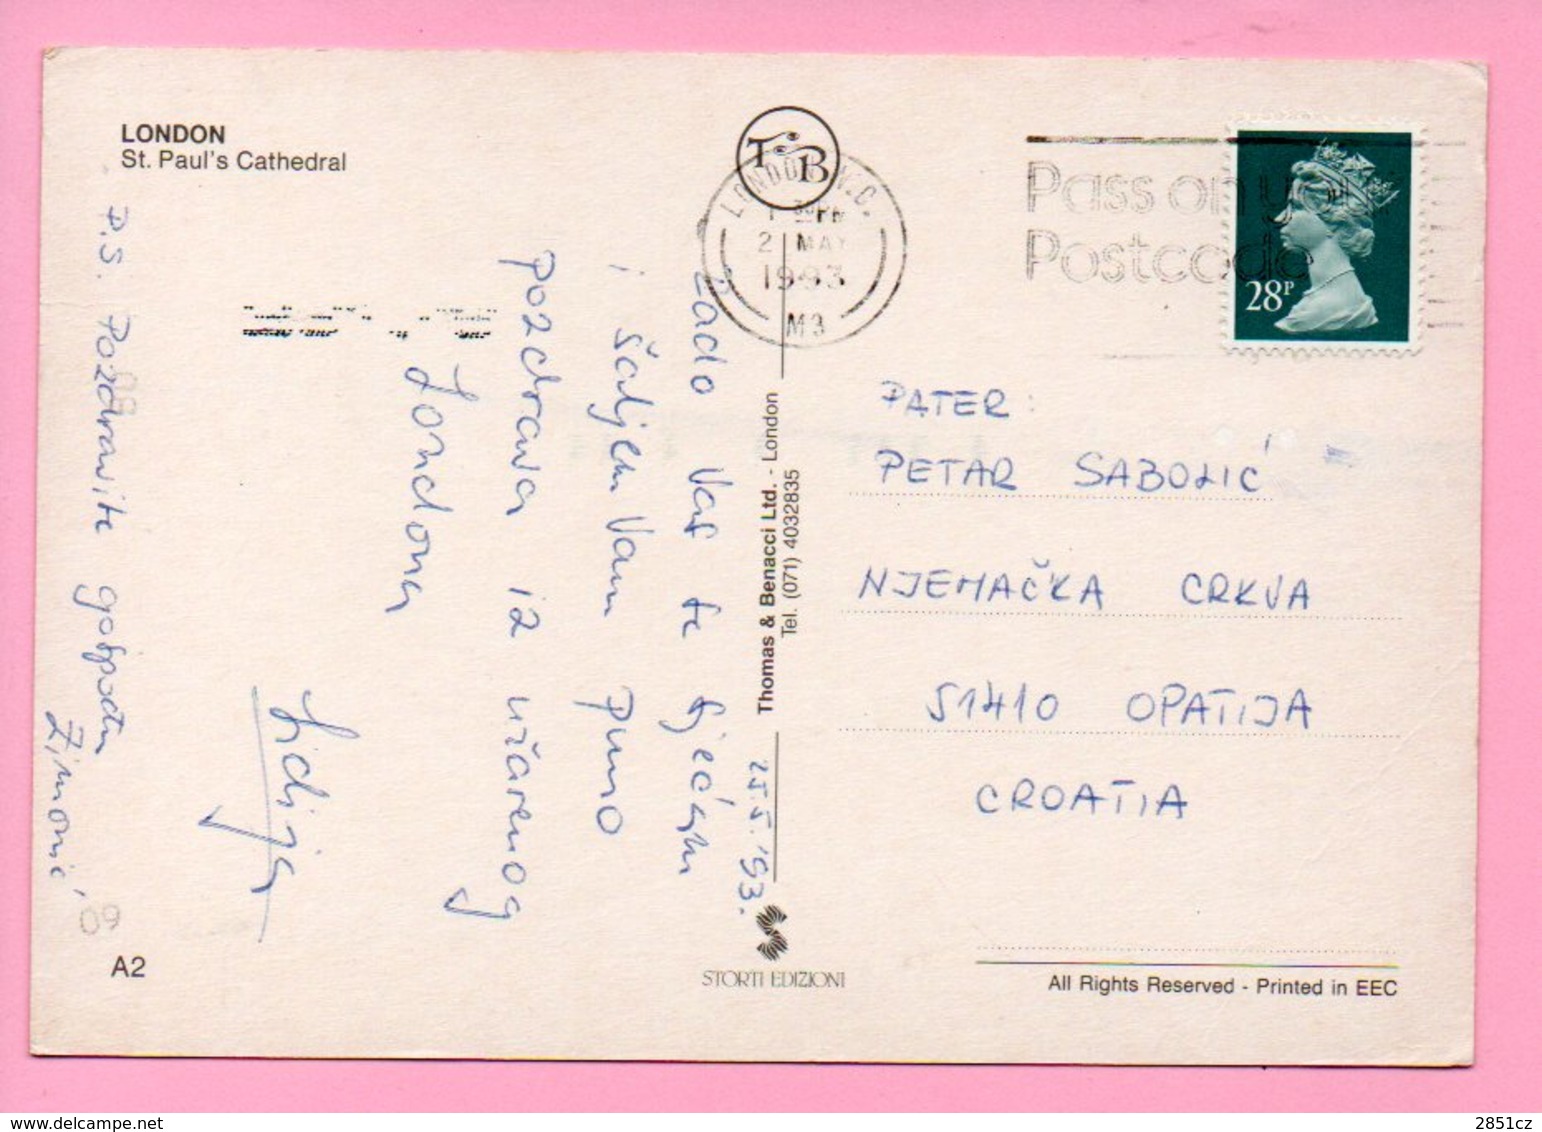 LONDON
St. Paul's Cathedral
T B
LONDON W.C.
2 MAY
1993
M3
Pass on your
Postcode
28P
25.5.'93.
Rado Vas se sjećam
i šaljem Vam puno
pozdrava iz užarenog
Londona
Lidija
P.S. Pozdravite gospođu
Zimonić
PATER:
PETAR SABOLIĆ
NJEMAČKA CRKVA
51410 OPATIJA
CROATIA
Thomas & Benacci Ltd. - London
Tel. (071) 4032835
STORTI EDIZIONI
09
A2
All Rights Reserved - Printed in EEC
2851cz